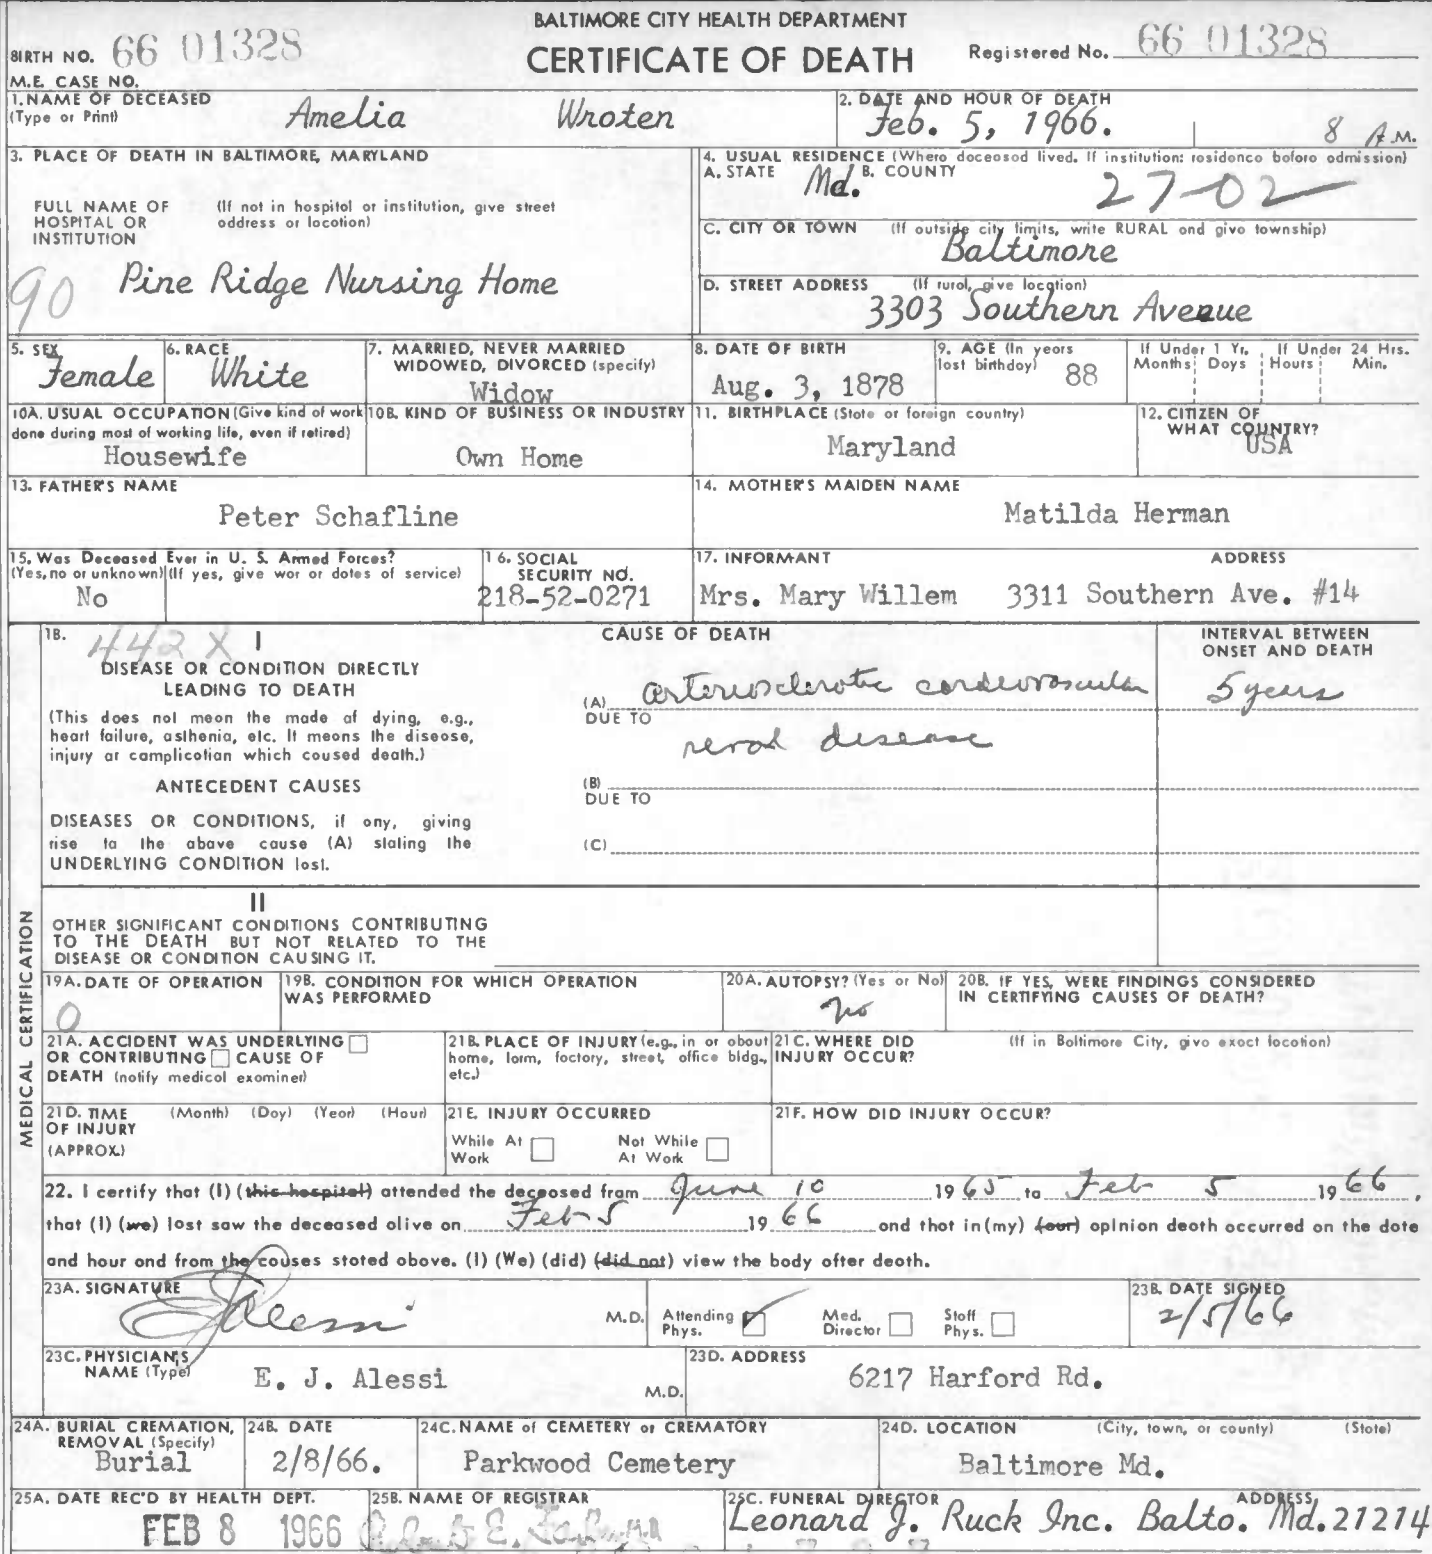 BALTIMORE CITY HEALTH DEPARTMENT
CERTIFICATE OF DEATH
BIRTH NO. 66 01328
Registered No. 66 01328
M.E. CASE NO.
1. NAME OF DECEASED
(Type or Print)
Amelia Wroten
2. DATE AND HOUR OF DEATH
Feb. 5, 1966. 8 A.M.
3. PLACE OF DEATH IN BALTIMORE, MARYLAND
FULL NAME OF HOSPITAL OR INSTITUTION
(If not in hospital or institution, give street address or location)
90
Pine Ridge Nursing Home
4. USUAL RESIDENCE (Where deceased lived. If institution: residence before admission)
A. STATE Md. B. COUNTY 27-02
C. CITY OR TOWN (If outside city limits, write RURAL and give township)
Baltimore
D. STREET ADDRESS (If rural, give location)
3303 Southern Avenue
5. SEX
Female
6. RACE
White
7. MARRIED, NEVER MARRIED
WIDOWED, DIVORCED (specify)
Widow
8. DATE OF BIRTH
Aug. 3, 1878
9. AGE (In years
last birthday) 88
If Under 1 Yr.
Months Days
If Under 24 Hrs.
Hours Min.
10A. USUAL OCCUPATION (Give kind of work
done during most of working life, even if retired)
Housewife
10B. KIND OF BUSINESS OR INDUSTRY
Own Home
11. BIRTHPLACE (State or foreign country)
Maryland
12. CITIZEN OF
WHAT COUNTRY?
USA
13. FATHER'S NAME
Peter Schafline
14. MOTHER'S MAIDEN NAME
Matilda Herman
15. Was Deceased Ever in U. S. Armed Forces?
(Yes, no or unknown) (If yes, give war or dates of service)
No
16. SOCIAL
SECURITY NO.
218-52-0271
17. INFORMANT ADDRESS
Mrs. Mary Willem 3311 Southern Ave. #14
MEDICAL CERTIFICATION
18. 442X I
DISEASE OR CONDITION DIRECTLY
LEADING TO DEATH
(This does not mean the mode of dying, e.g.,
heart failure, asthenia, etc. It means the disease,
injury or complication which caused death.)
ANTECEDENT CAUSES
DISEASES OR CONDITIONS, if any, giving
rise to the above cause (A) stating the
UNDERLYING CONDITION last.
CAUSE OF DEATH
(A) arteriosclerotic cardiovascular
DUE TO
renal disease
(B)
DUE TO
(C)
INTERVAL BETWEEN
ONSET AND DEATH
5 years
II
OTHER SIGNIFICANT CONDITIONS CONTRIBUTING
TO THE DEATH BUT NOT RELATED TO THE
DISEASE OR CONDITION CAUSING IT.
19A. DATE OF OPERATION
0
19B. CONDITION FOR WHICH OPERATION
WAS PERFORMED
20A. AUTOPSY? (Yes or No)
no
20B. IF YES, WERE FINDINGS CONSIDERED
IN CERTIFYING CAUSES OF DEATH?
21A. ACCIDENT WAS UNDERLYING
OR CONTRIBUTING CAUSE OF
DEATH (notify medical examiner)
21B. PLACE OF INJURY (e.g., in or about
home, farm, factory, street, office bldg.,
etc.)
21C. WHERE DID
INJURY OCCUR?
(If in Baltimore City, give exact location)
21D. TIME
OF INJURY
(APPROX.)
(Month) (Day) (Year) (Hour)
21E. INJURY OCCURRED
While At
Work
Not While
At Work
21F. HOW DID INJURY OCCUR?
22. I certify that (I) (this hospital) attended the deceased from June 10 1965 to Feb 5 1966,
that (I) (we) last saw the deceased alive on Feb 5 1966 and that in (my) (our) opinion death occurred on the date
and hour and from the causes stated above. (I) (We) (did) (did not) view the body after death.
23A. SIGNATURE
EJAlessi M.D.
Attending
Phys.
Med.
Director
Staff
Phys.
23B. DATE SIGNED
2/5/66
23C. PHYSICIAN'S
NAME (Type)
E. J. Alessi M.D.
23D. ADDRESS
6217 Harford Rd.
24A. BURIAL CREMATION,
REMOVAL (Specify)
Burial
24B. DATE
2/8/66.
24C. NAME of CEMETERY or CREMATORY
Parkwood Cemetery
24D. LOCATION (City, town, or county) (State)
Baltimore Md.
25A. DATE REC'D BY HEALTH DEPT.
FEB 8 1966
25B. NAME OF REGISTRAR
25C. FUNERAL DIRECTOR ADDRESS
Leonard J. Ruck Inc. Balto. Md. 21214